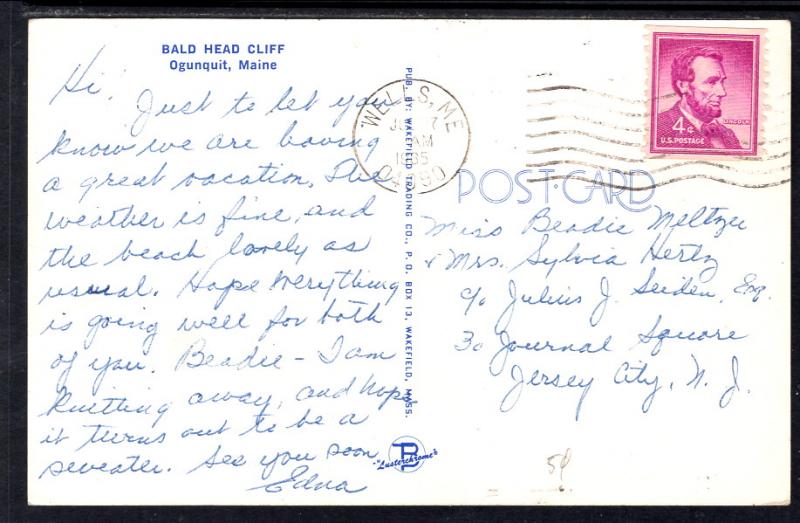 BALD HEAD CLIFF
Ogunquit, Maine
Hi, Just to let you
know we are having
a great vacation. The
weather is fine, and
the beach lovely as
usual. Hope everything
is going well for both
of you. Beadie - I am
knitting away, and hope
it turns out to be a
sweater. See you soon
Edna
PUB. BY: WAKEFIELD TRADING CO., P. O. BOX 13, WAKEFIELD, MASS.
"Lusterchrome"
WELLS, ME
AM
04090
4¢
LINCOLN
U.S. POSTAGE
POST CARD
Miss Beadie Meltzer
& Mrs. Sylvia Hertz
c/o Julius J. Seiden, Esq.
30 Journal Square
Jersey City, N. J.